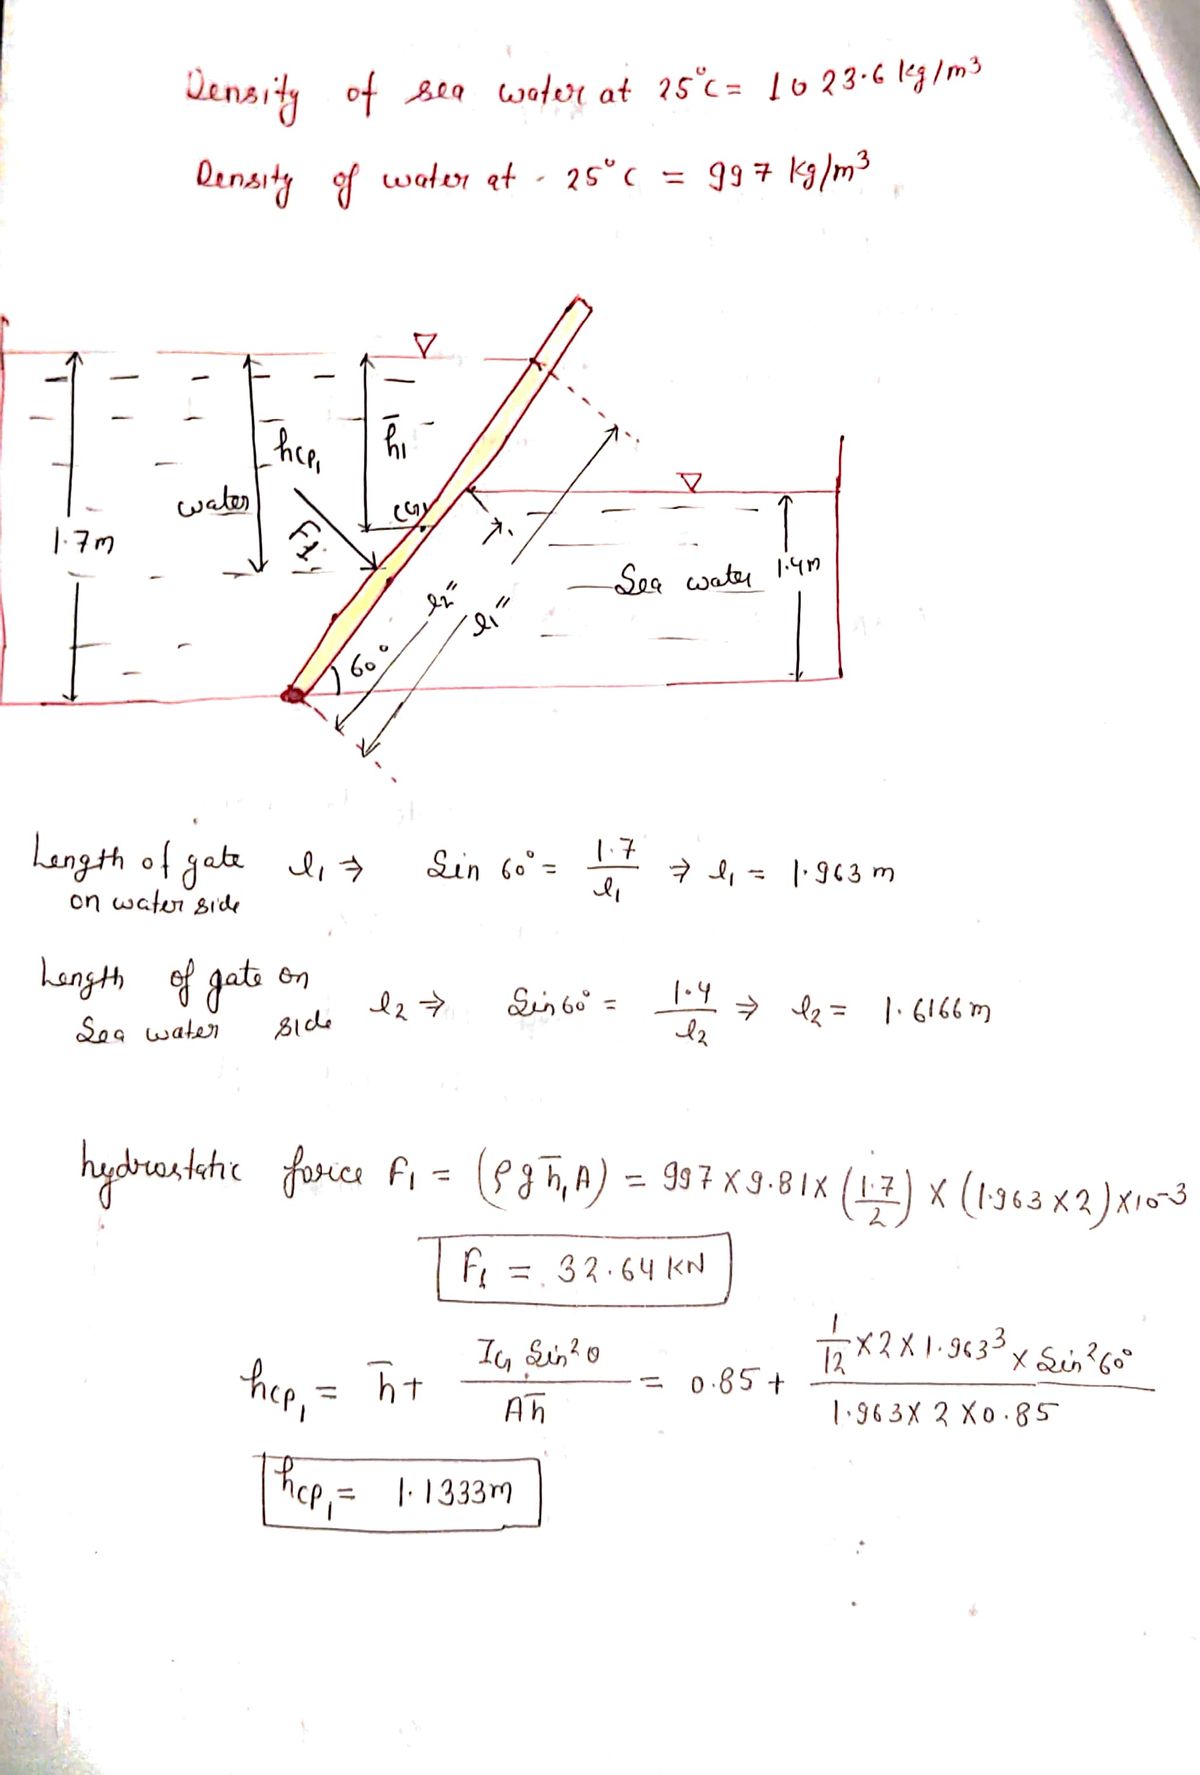 Density of sea water at 25°C = 1023.6 kg/m³
Density of water at - 25°C = 997 kg/m³
hcp₁
h̄₁
water
CG
F₁
1.7m
Sea water
1.4m
l₂"
l₁"
60°
Length of gate l₁ ⇒ Sin 60° = 1.7/l₁ ⇒ l₁ = 1.963 m
on water side
Length of gate on
Sea water side l₂ ⇒ Sin 60° = 1.4/l₂ ⇒ l₂ = 1.6166 m
hydrostatic force F₁ = (ρgh̄₁A) = 997 × 9.81 × (1.7/2) × (1.963 × 2) × 10⁻³
F₁ = 32.64 KN
hcp₁ = h̄ + IG Sin²θ/Ah̄ = 0.85 + 1/12 × 2 × 1.963³ × Sin²60°/1.963 × 2 × 0.85
hcp₁ = 1.1333m